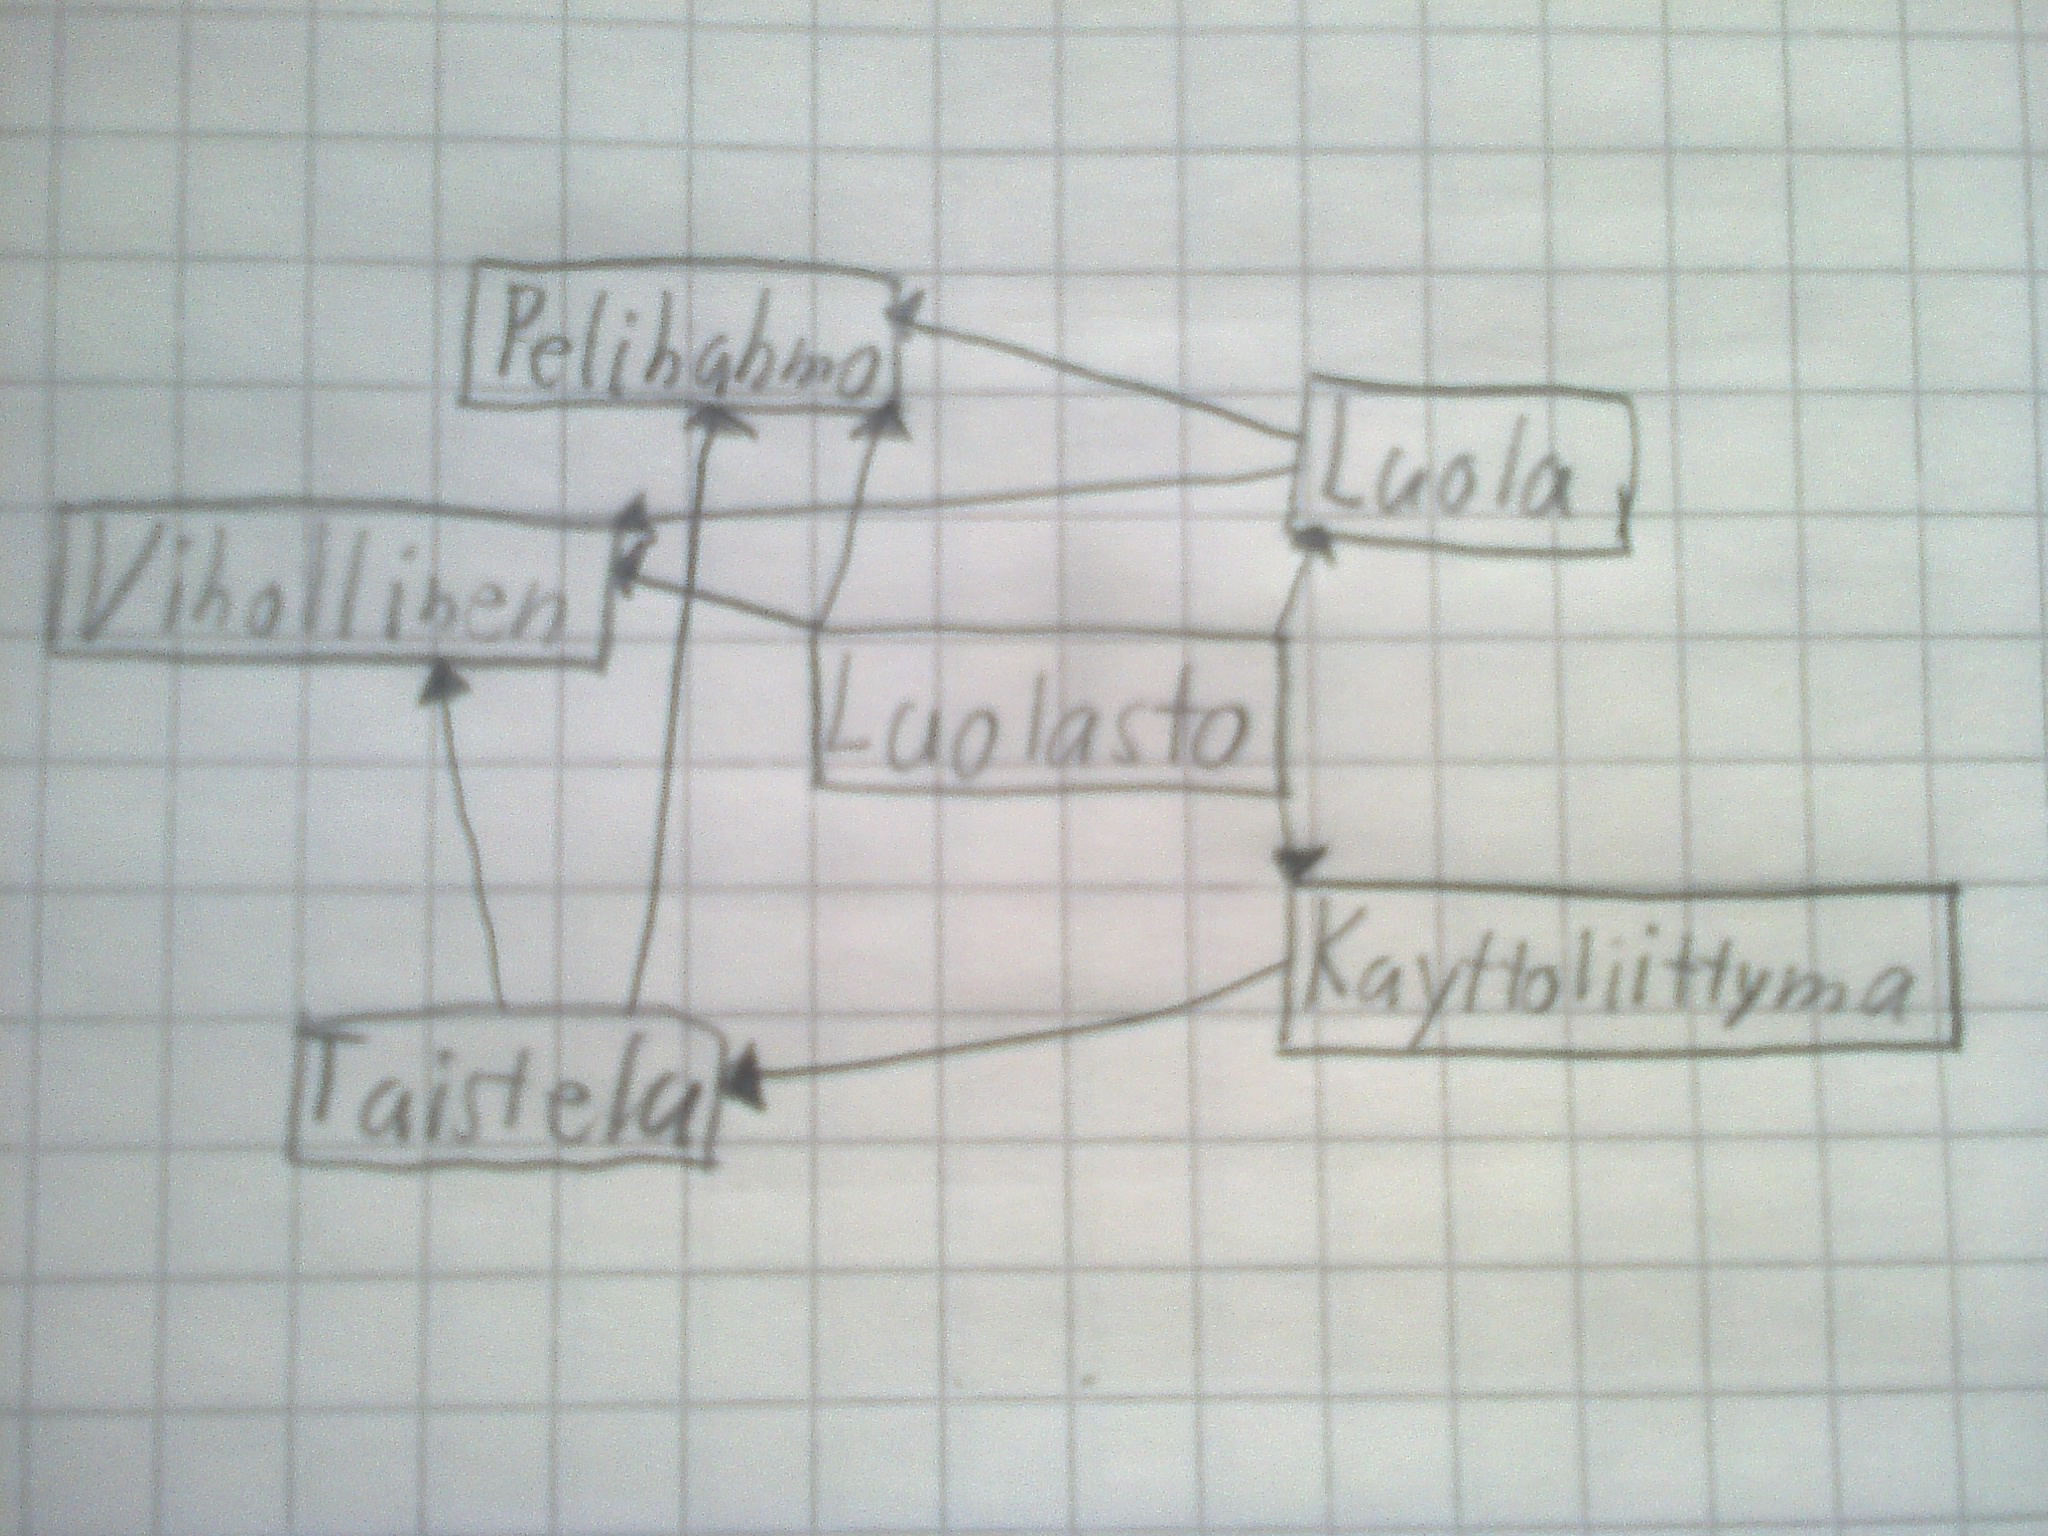 Pelihahmo
Luola
Vihollinen
Luolasto
Kayttoliittyma
Taistelu